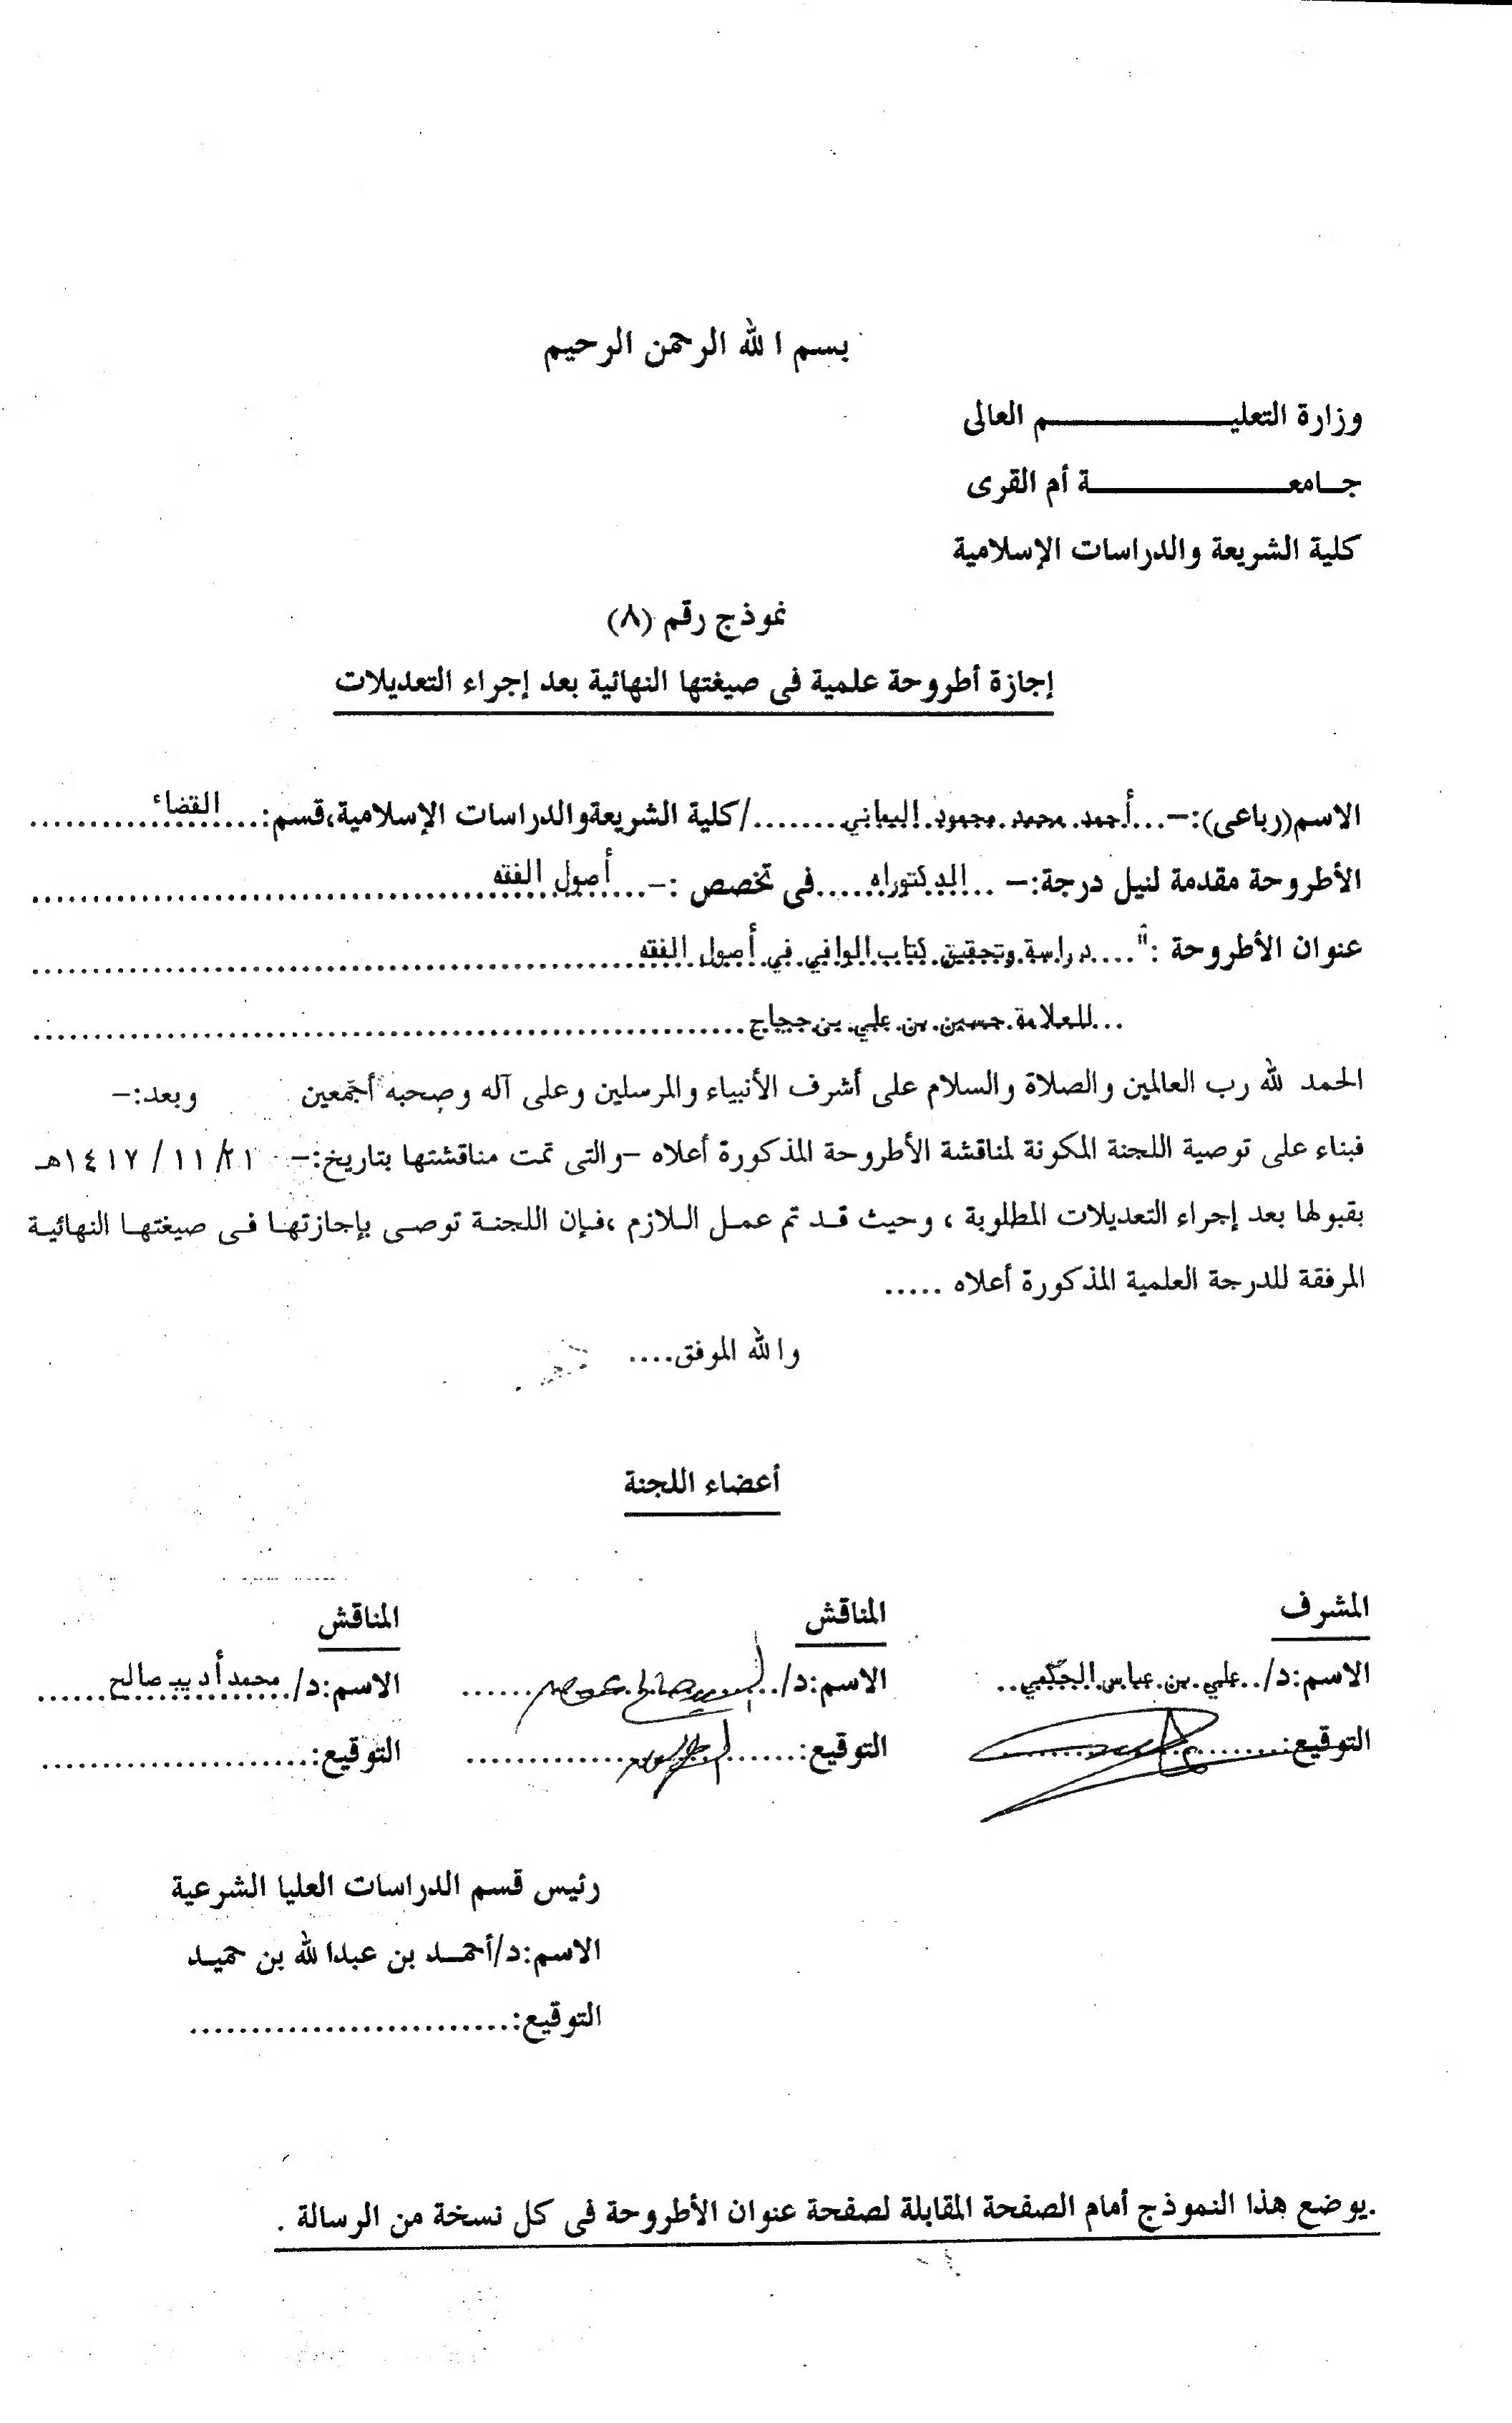 بسم الله الرحمن الرحيم
وزارة التعليــــــــــم العالى
جـامعــــــــــة أم القرى
كلية الشريعة والدراسات الإسلامية
نموذج رقم (٨)
إجازة أطروحة علمية فى صيغتها النهائية بعد إجراء التعديلات
الاسم(رباعى):-...أحمد محمد محمود اليماني......../كلية الشريعة والدراسات الإسلامية،قسم:....القضاء..........
الأطروحة مقدمة لنيل درجة:- ..الدكتوراه.....فى تخصص :-...أصول الفقه..........
عنوان الأطروحة :"....دراسة وتحقيق كتاب الوافي في أصول الفقه..........
...للعلامة حسين بن علي بن حجاج..........
الحمد لله رب العالمين والصلاة والسلام على أشرف الأنبياء والمرسلين وعلى آله وصحبه أجمعين وبعد:-
فبناء على توصية اللجنة المكونة لمناقشة الأطروحة المذكورة أعلاه -والتى تمت مناقشتها بتاريخ:- ٢١/ ١١ / ١٤١٧هـ
بقبولها بعد إجراء التعديلات المطلوبة ، وحيث قد تم عمل اللازم ،فإن اللجنة توصى بإجازتها فى صيغتها النهائية
المرفقة للدرجة العلمية المذكورة أعلاه .....
والله الموفق....
أعضاء اللجنة
المشرف المناقش المناقش
الاسم:د/..علي بن عباس الحكمي.. الاسم:د/.......... الاسم:د/.محمد أديب صالح......
التوقيع:.......... التوقيع:.......... التوقيع:..........
رئيس قسم الدراسات العليا الشرعية
الاسم:د/أحمـد بن عبدالله بن حميـد
التوقيع:..........
.يوضع هذا النموذج أمام الصفحة المقابلة لصفحة عنوان الأطروحة فى كل نسخة من الرسالة .